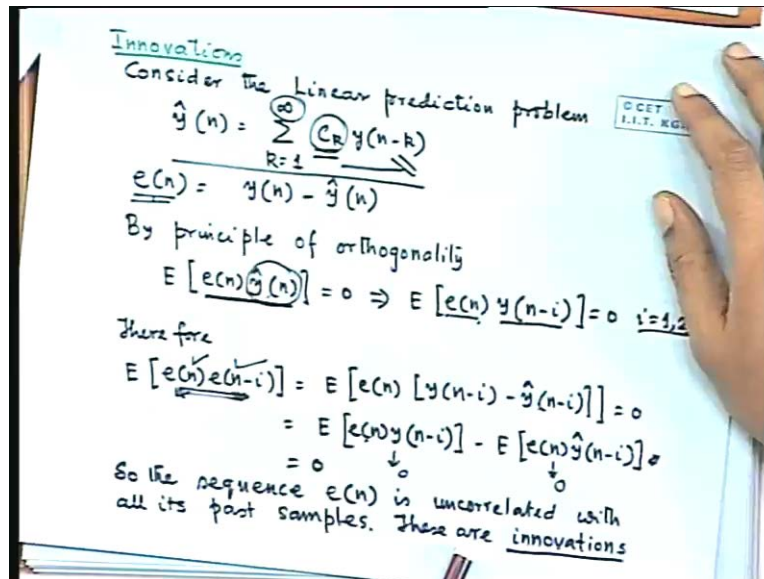 Innovations
Consider the Linear prediction problem
ŷ(n) = ∑_{k=1}^{∞} C_k y(n-k)
e(n) = y(n) - ŷ(n)
By principle of orthogonality
E [e(n) ŷ(n)] = 0 ⇒ E [e(n) y(n-i)] = 0 i=1,2
Therefore
E [e(n) e(n-i)] = E [e(n) [y(n-i) - ŷ(n-i)]] = 0
= E [e(n) y(n-i)] - E [e(n) ŷ(n-i)]
= 0 ↓0 ↓0
So the sequence e(n) is uncorrelated with
all its past samples. These are innovations
© CET
I.I.T. KG